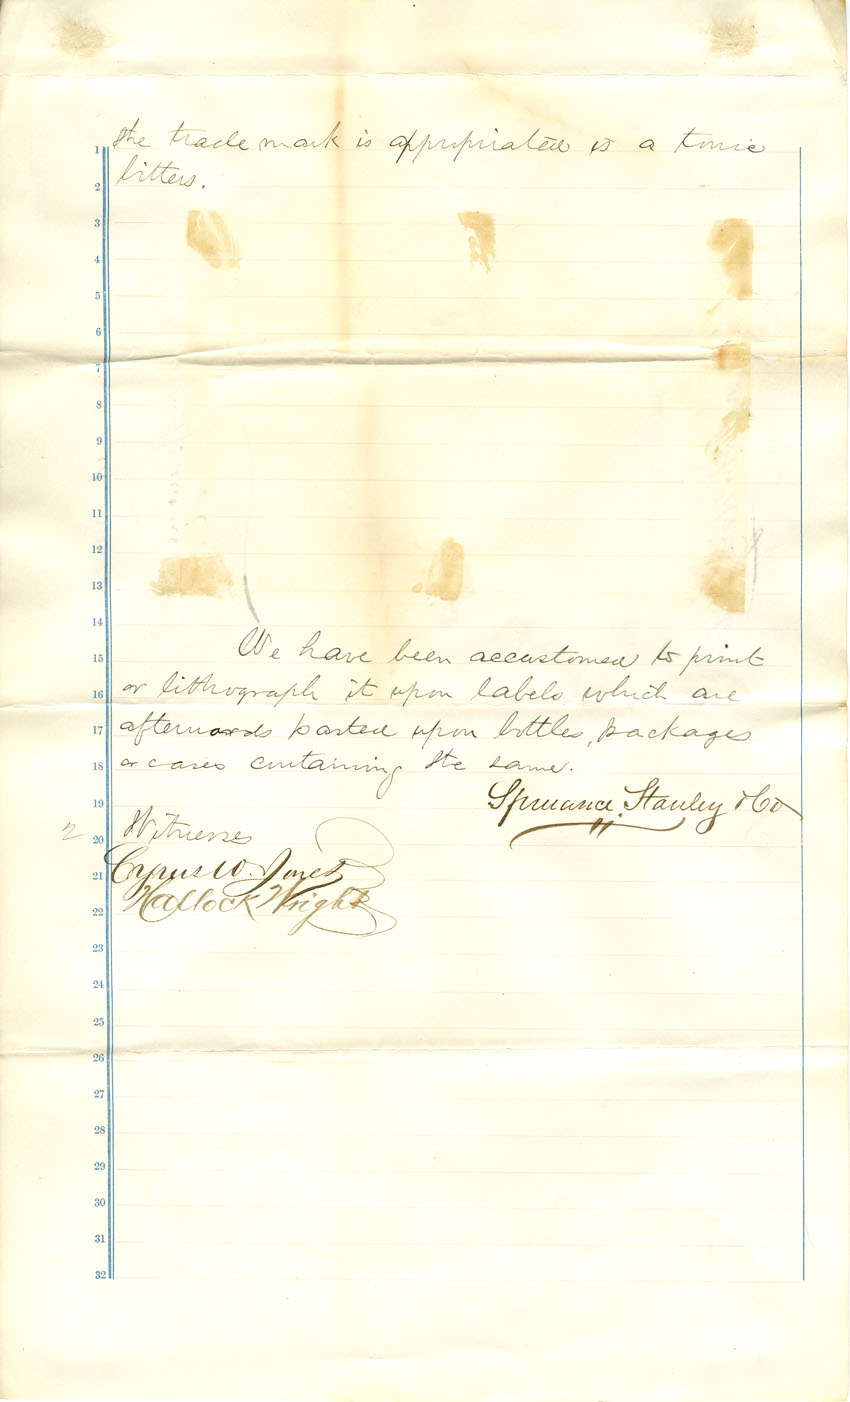 the trade mark is appropriated is a tonic
bitters.
We have been accustomed to print
or lithograph it upon labels which are
afterwards pasted upon bottles, packages
or cases containing the same.
Spruance, Stanley & Co
2
Witnesses
Cyrus W. Jones
Hallock Wright
1
2
3
4
5
6
7
8
9
10
11
12
13
14
15
16
17
18
19
20
21
22
23
24
25
26
27
28
29
30
31
32